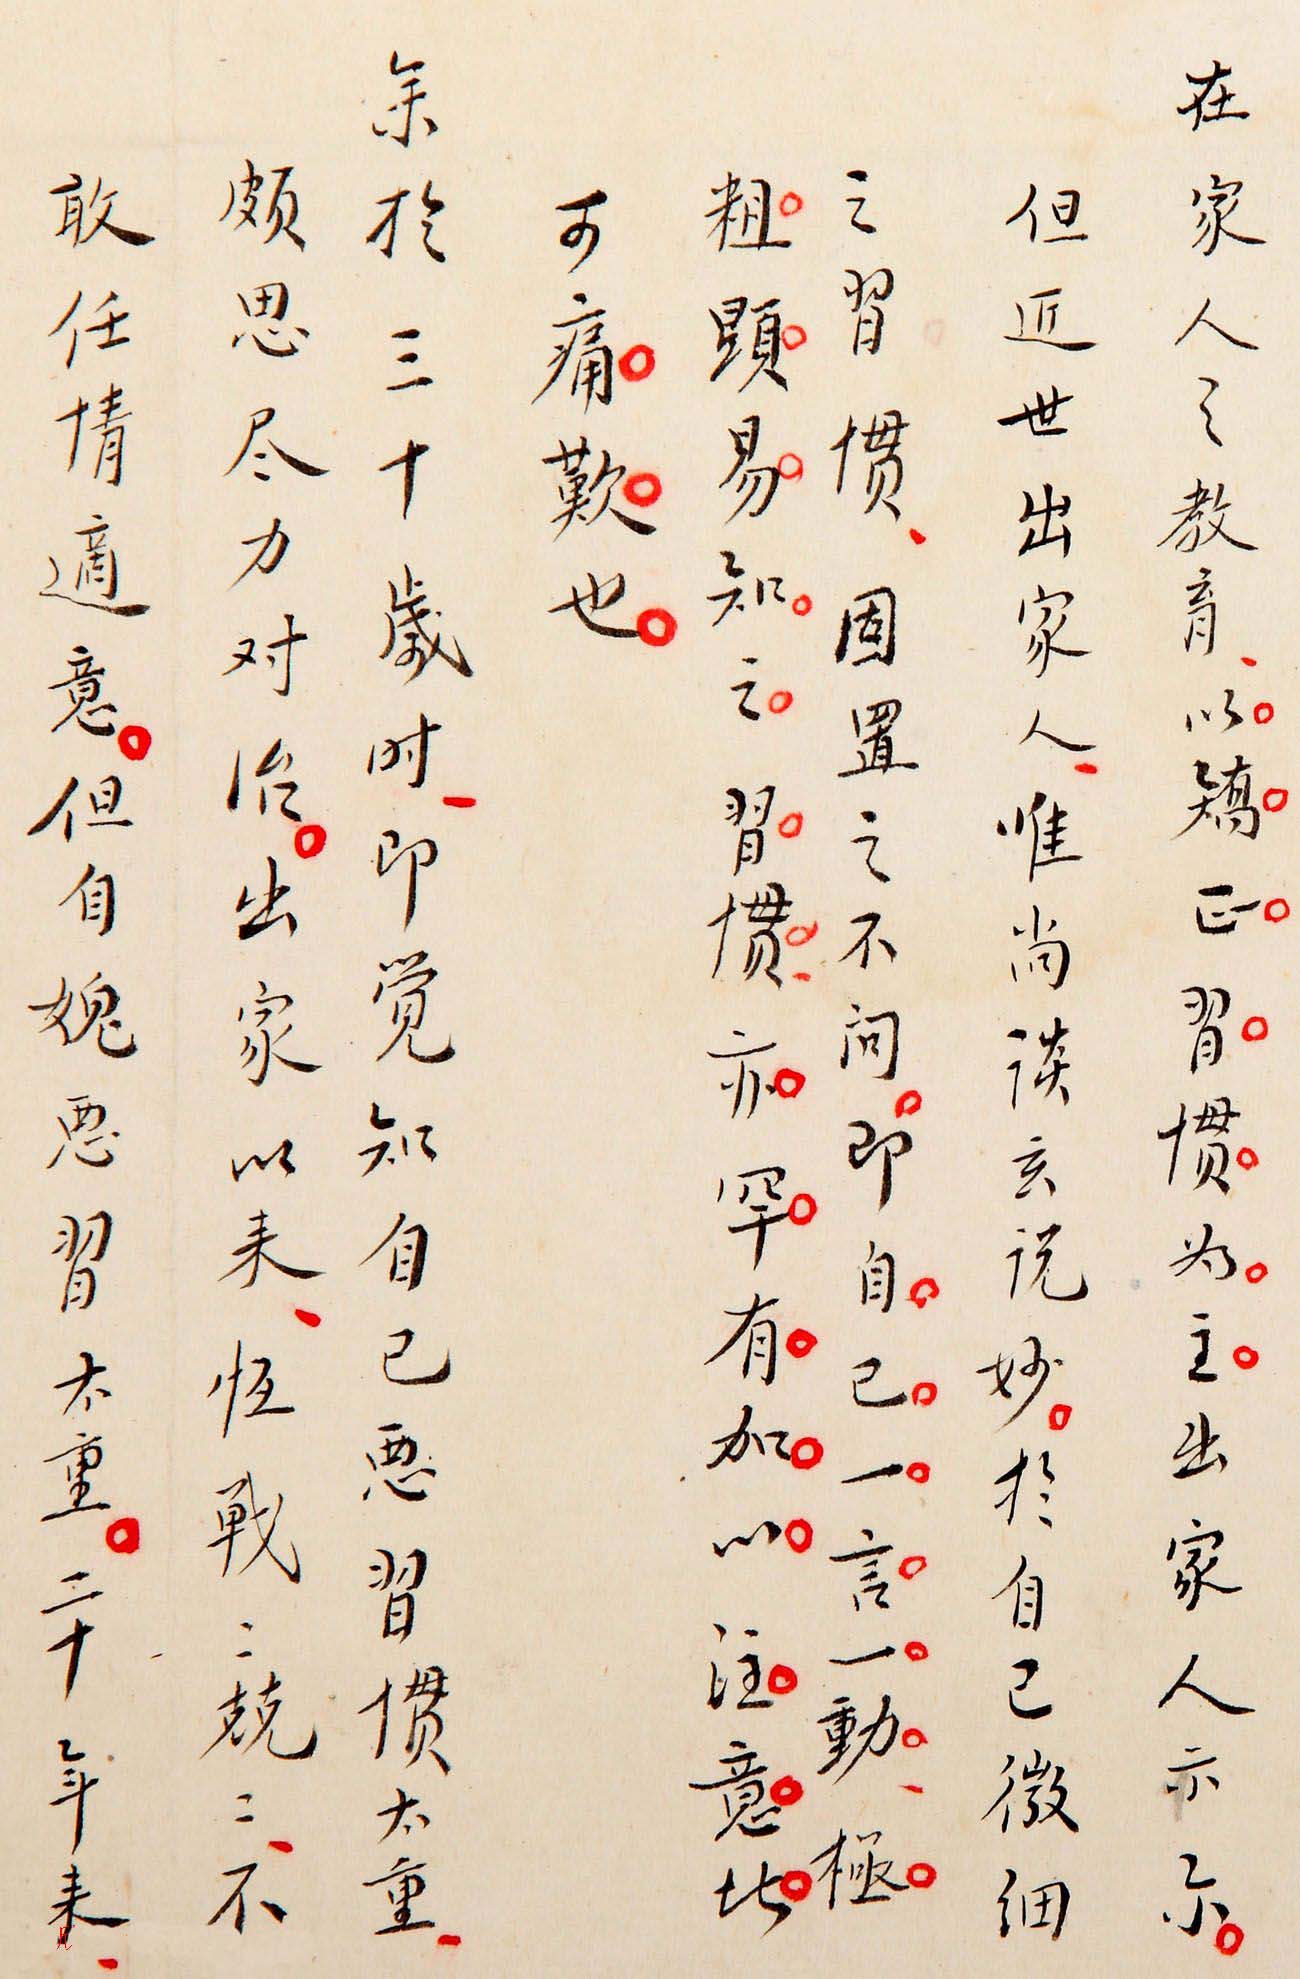 在家人之教育、以矯正習慣为主出家人亦尔。
但近世出家人、唯尚談玄说妙。於自己微细
之習慣、固置之不问。即自己一言一動、極
粗顕易知之習慣、亦罕有加以注意此
可痛歎也
余於三十歲时、即觉知自己恶習慣太重、
颇思尽力对治。出家以来、恆戰々兢々、不
敢任情適意。但自媿恶習太重。二十年来、